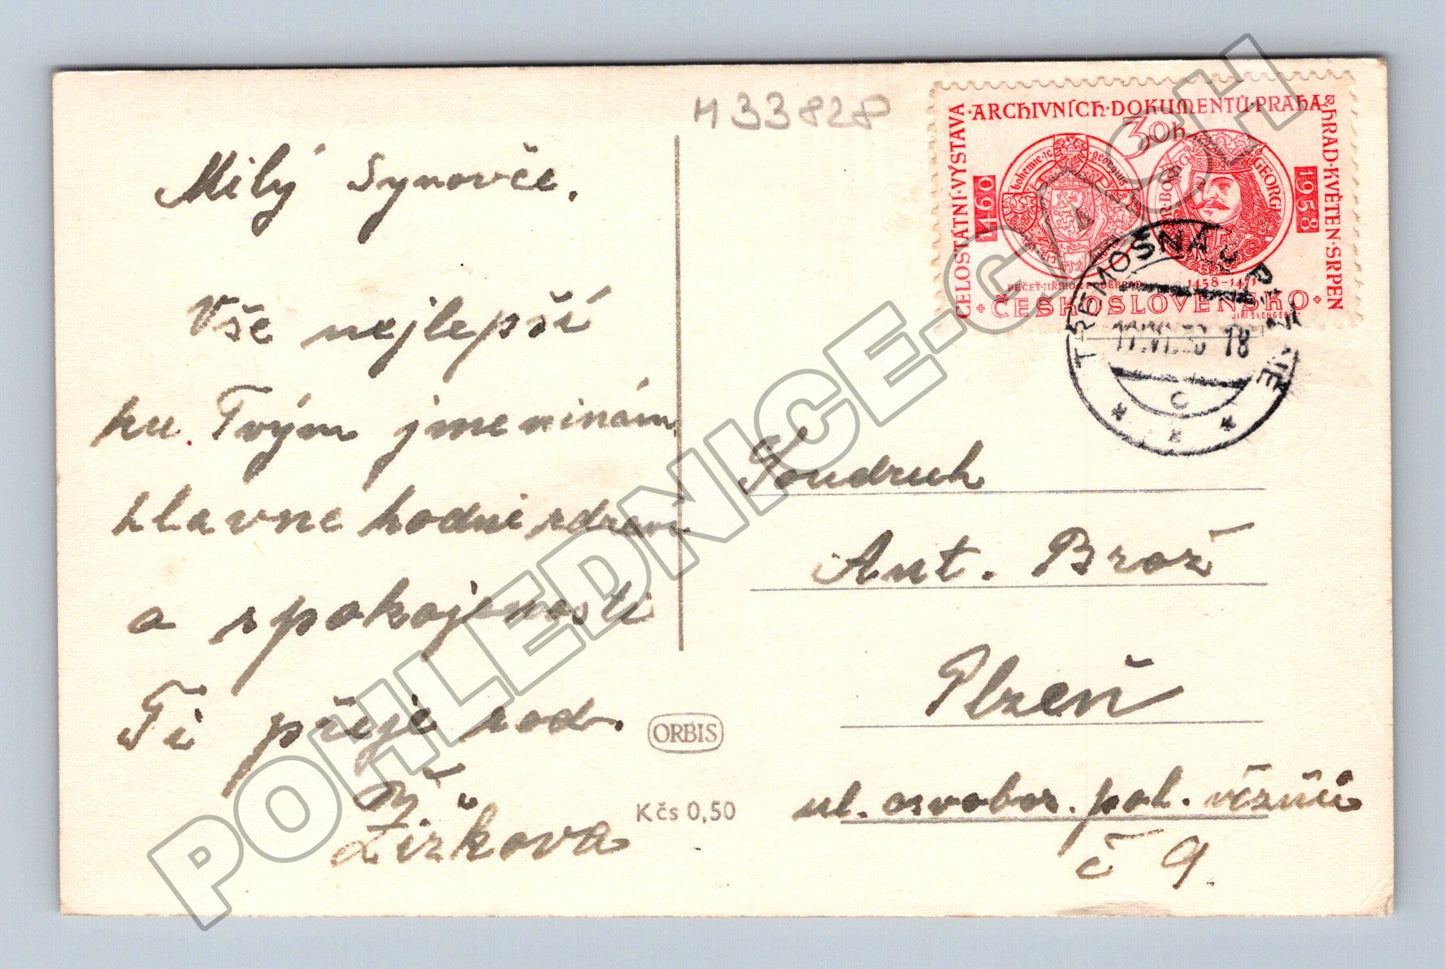 M 33828
Milý Synovče.
Vše nejlepší
ku Tvým jmeninám
hlavne hodně zdraví
a spokojenosti
Ti přeje rod.
Žižkova
ORBIS
Kčs 0,50
CELOSTÁTNÍ·VÝSTAVA·ARCHIVNÍCH·DOKUMENTŮ·PRAHA·HRAD·KVĚTEN·SRPEN
30h
1460
1958
GEORGI
PEČEŤ JIŘÍHO Z PODĚBRAD
1458-1471
ČESKOSLOVENSKO
TŘEMOŠNÁ U PLZNĚ
18
C
Soudruh
Ant. Brož
Plzeň
ul. osvoboz. pol. vězňů
č 9.
POHLEDNICE.CZ